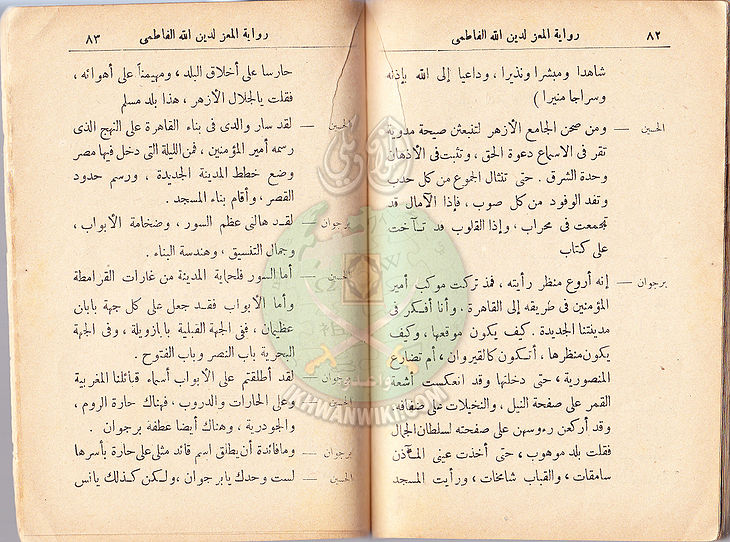 ٨٢ رواية المعز لدين الله الفاطمى
شاهدا ومبشرا ونذيرا ، وداعيا إلى الله بإذنه
وسراجا منيرا )
الحسين — ومن صحن الجامع الأزهر لتنبعثن صيحة مدوية
تقر فى الاسماع دعوة الحق ، وتثبت فى الأذهان
وحدة الشرق . حتى تنثال الجموع من كل حدب
وتفد الوفود من كل صوب ، فإذا الآمال قد
تجمعت فى محراب ، وإذا القلوب قد تآخت
على كتاب
برجوان — إنه أروع منظر رأيته ، فمذ تركت موكب أمير
المؤمنين فى طريقه إلى القاهرة ، وأنا أفكر فى
مدينتنا الجديدة . كيف يكون موقعها ، وكيف
يكون منظرها ، أتكون كالقيروان ، أم تضارع
المنصورية ، حتى دخلتها وقد انعكست أشعة
القمر على صفحة النيل ، والنخيلات على ضفافه،
وقد أركعن رءوسهن على صفحته لسلطان الجمال
فقلت بلد موهوب ، حتى أخذت عينى المآذن
سامقات ، والقباب شامخات ، ورأيت المسجد
رواية المعز لدين الله الفاطمى ٨٣
حارسا على أخلاق البلد ، ومهيمناً على أهوائه ،
فقلت يالجلال الأزهر ، هذا بلد مسلم
الحسين — لقد سار والدى فى بناء القاهرة على النهج الذى
رسمه أمير المؤمنين ، فمن الليلة التى دخل فيها مصر
وضع خطط المدينة الجديدة ، ورسم حدود
القصر ، وأقام بناء المسجد .
برجوان — لقد هالنى عظم السور ، وضخامة الأبواب ،
وجمال التنسيق ، وهندسة البناء .
الحسين — أما السور فلحماية المدينة من غارات القرامطة
وأما الأبواب فقد جعل على كل جهة بابان
عظيمان ، ففى الجهة القبلية بابا زويلة ، وفى الجهة
البحرية باب النصر وباب الفتوح .
برجوان — لقد أطلقتم على الأبواب أسماء قبائلنا المغربية
الحسين — وعلى الحارات والدروب ، فهناك حارة الروم ،
والجودرية ، وهناك أيضا عطفة برجوان .
برجوان — وما فائدة أن يطلق اسم قائد مثلى على حارة بأسرها
الحسين — لست وحدك يا برجوان ، ولكن كذلك يانس
IKHWANWIKI.COM